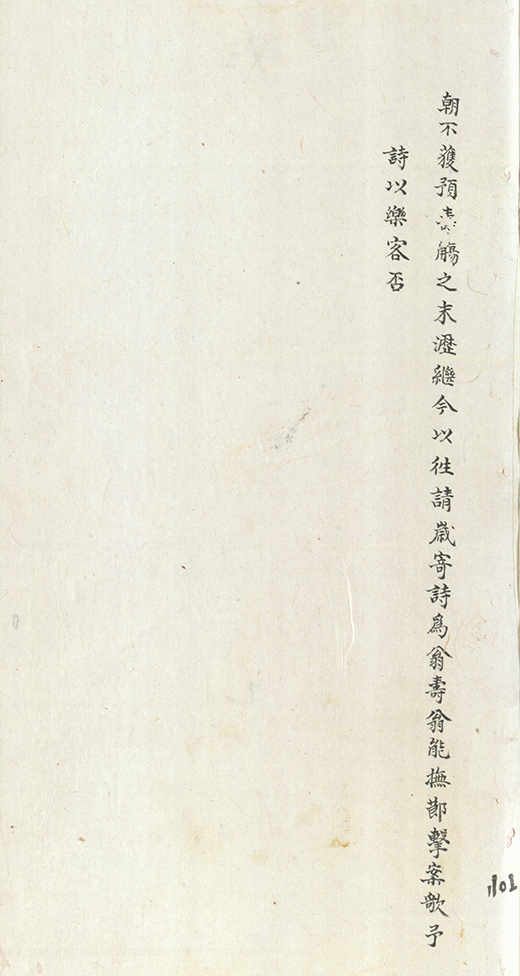 朝不獲預觴之末瀝繼今以徃請嵗寄詩爲翁壽翁能撫莭擊案歌予
詩以樂客否